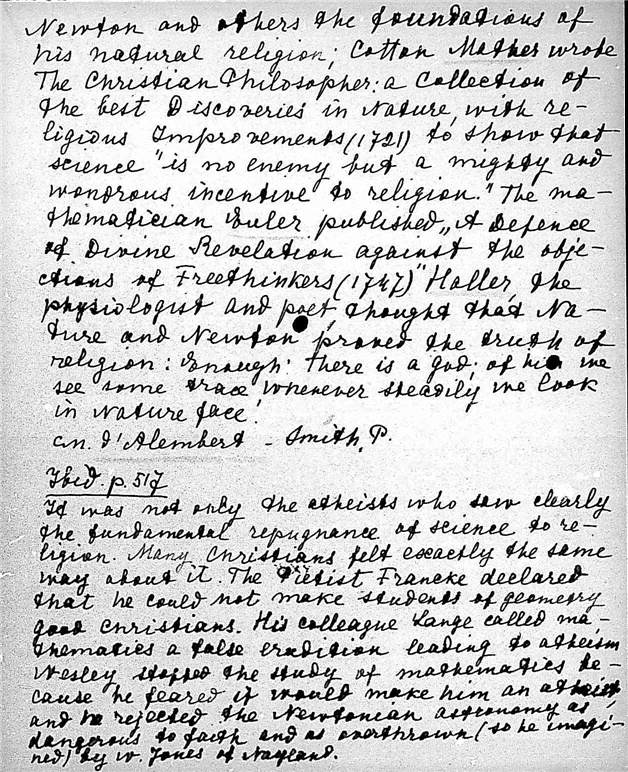 Newton and others the foundations of
his natural religion; Cotton Mather wrote
The Christian Philosopher: a Collection of
the best Discoveries in Nature, with re-
ligious Improvements (1721) to show that
science "is no enemy but a mighty and
wondrous incentive to religion." The ma-
thematician Euler published „A Defence
of Divine Revelation against the obje-
ctions of Freethinkers (1747)" Haller, the
physiologist and poet, thought that Na-
ture and Newton proved the truth of
religion: 'Enough! There is a god; of him we
see some trace whenever steadily we look
in Nature face'.
cn. d'Alembert - Smith, P.
Ibid. p. 517
It was not only the atheists who saw clearly
the fundamental repugnance of science to re-
ligion. Many Christians felt exactly the same
way about it. The Pietist Francke declared
that he could not make students of geometry
good Christians. His colleague Lange called ma-
thematics a false erudition leading to atheism
Wesley stopped the study of mathematics be-
cause he feared it would make him an atheist,
and he rejected the Newtonian astronomy as
dangerous to faith and as overthrown (so he imagi-
ned) by W. Jones of Nayland.